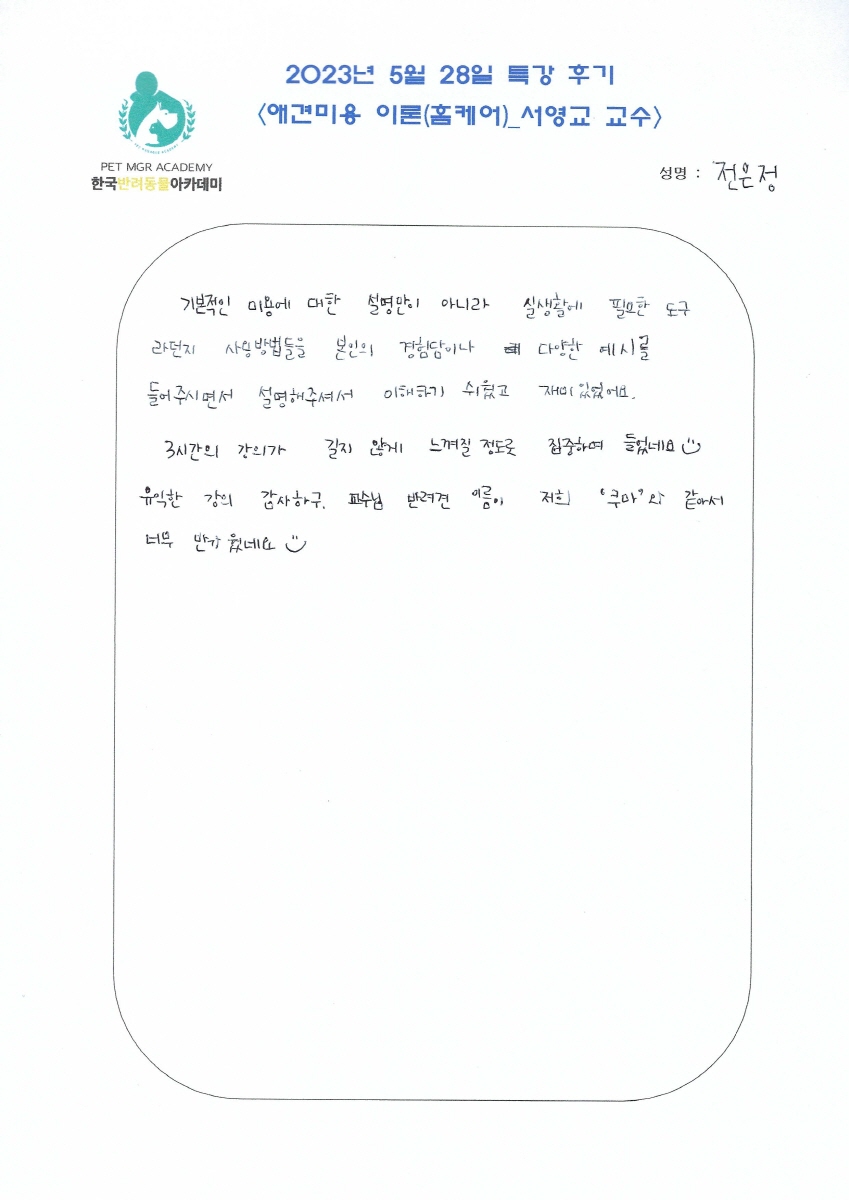 2023년 5월 28일 특강 후기
<애견미용 이론(홈케어)_서영교 교수>
PET MGR ACADEMY
한국반려동물아카데미
성명 : 전은정
기본적인 미용에 대한 설명만이 아니라 실생활에 필요한 도구
라던지 사용방법들을 본인의 경험담이나 다양한 예시를
들어주시면서 설명해주셔서 이해하기 쉬웠고 재미있었어요.
3시간의 강의가 길지 않게 느껴질 정도로 집중하며 들었네요
유익한 강의 감사하구, 교수님 반려견 이름이 저희 '쿠마'와 같아서
너무 반가웠네요